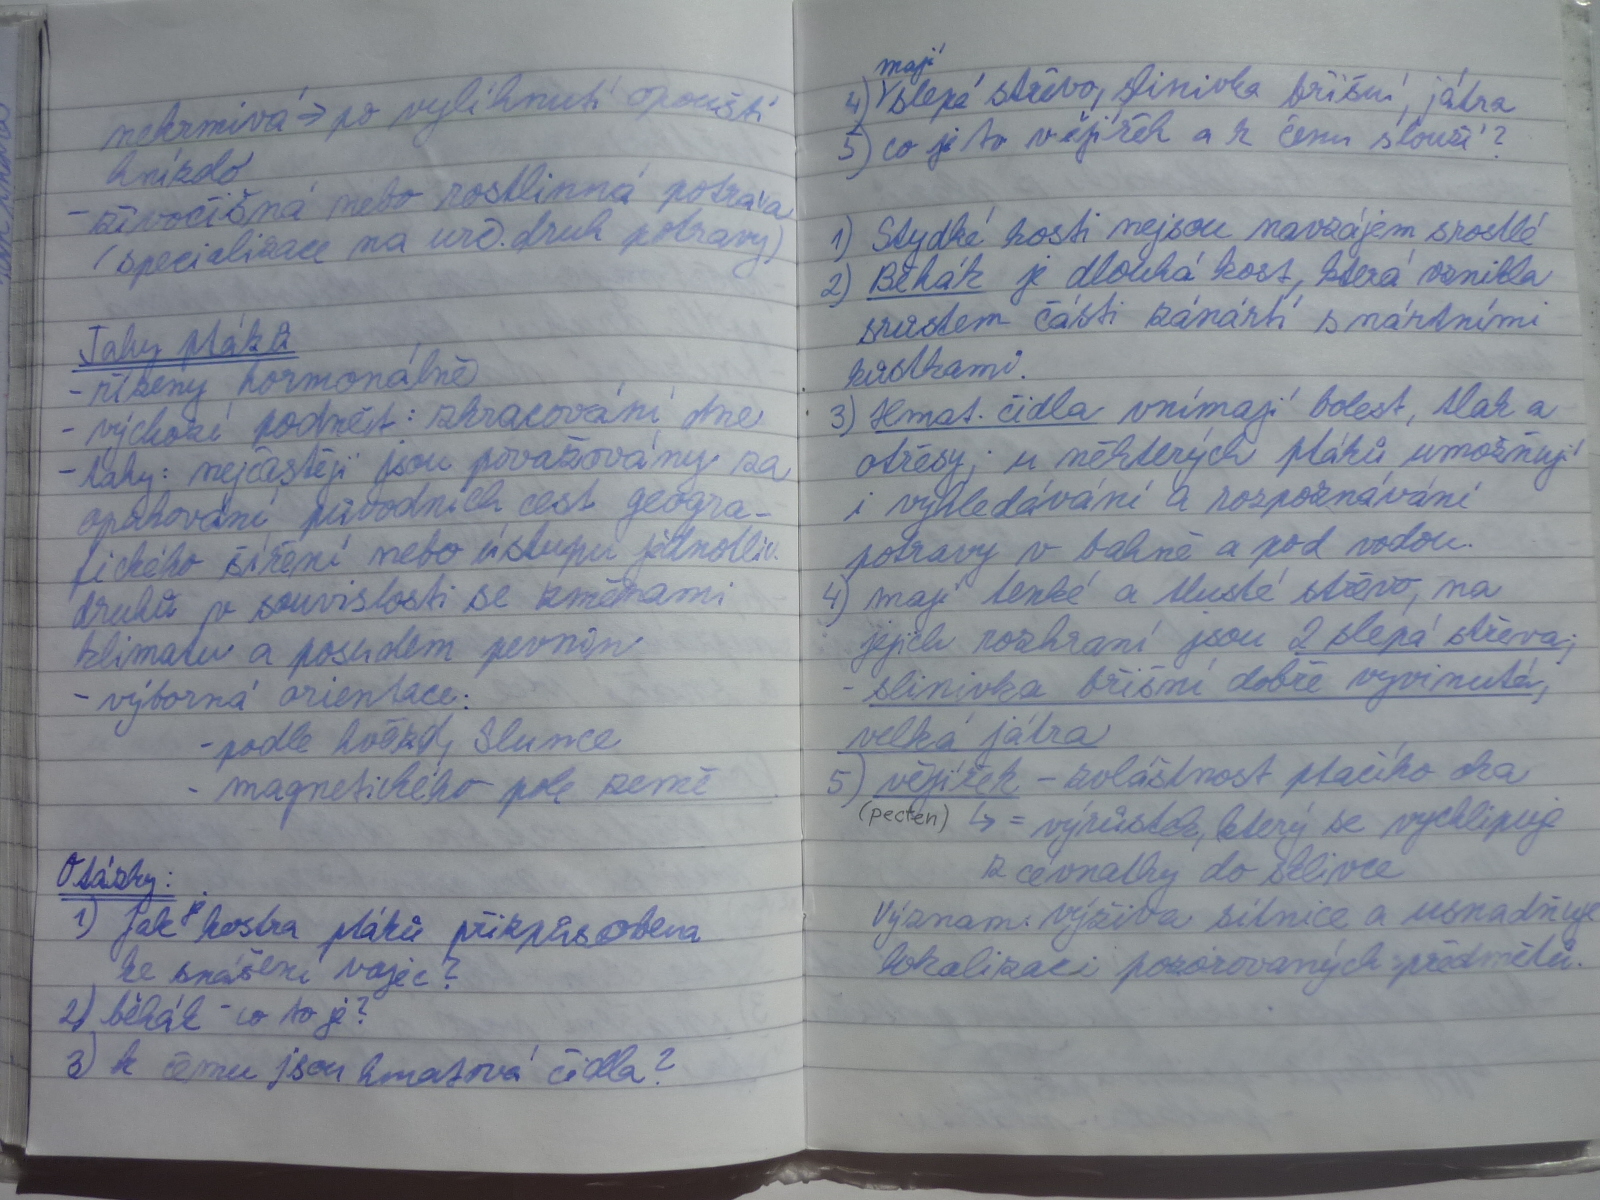 nekrmivá → po vylíhnutí opouští
hnízdo
- živočišná nebo rostlinná potrava
(specializace na urč. druh potravy)
Tahy ptáků
- řízeny hormonálně
- výchozí podnět: zkracování dne
- tahy: nejčastěji jsou považovány za
opakování původních cest geogra-
fického šíření nebo ústupu jednotliv.
druhů v souvislosti se změnami
klimatu a posudem pevnin
- výborná orientace:
- podle hvězd, Slunce
- magnetického pole země
Otázky:
1) Jak je kostra ptáků přizpůsobena
ke snášení vajec?
2) běhák - co to je?
3) k čemu jsou hmatová čidla?
mají
4) slepá střevo, slinivka břišní, játra
5) co je to vějířek a k čemu slouží?
1) Stydké kosti nejsou navzájem srostlé
2) Běhák je dlouhá kost, která vznikla
srůstem části zánártí s nártními
kůstkami.
3) Hmat. čidla vnímají bolest, tlak a
otřesy; u některých ptáků umožňují
i vyhledávání a rozpoznávání
potravy v bahně a pod vodou.
4) mají tenké a tlusté střevo, na
jejich rozhraní jsou 2 slepá střeva;
- slinivka břišní dobře vyvinutá,
velká játra
5) vějířek - zvláštnost ptačího oka
(pecten) ↳ = výrůstek, který se vychlipuje
z cévnatky do sklivce
Význam: výživa sítnice a usnadňuje
lokalizaci pozorovaných předmětů.